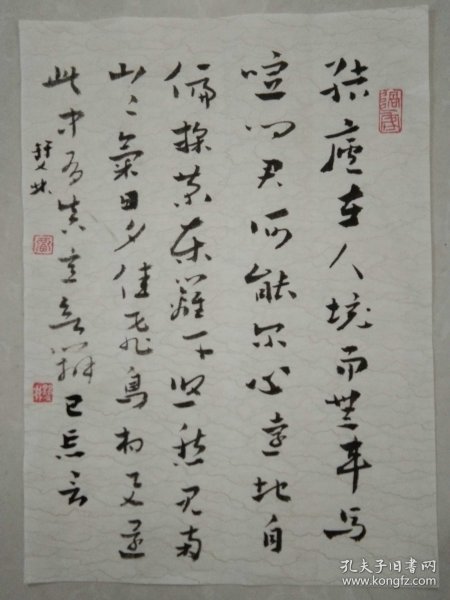 结庐在人境而無车马
喧问君何能尔心远地自
偏採菊东篱下悠然见南
山山氣日夕佳飞鸟相与还
此中有真意欲辨已忘言
孔夫子旧书网
www.kongfz.com